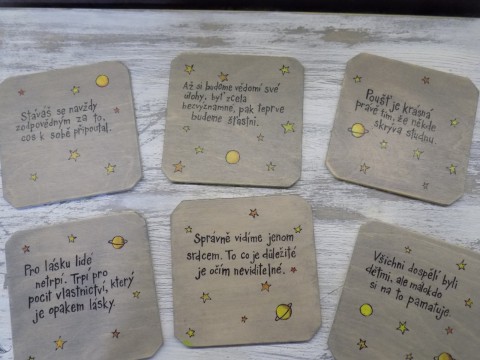 Stáváš se navždy
zodpovědným za to,
cos k sobě připoutal.
Až si budeme vědomi své
úlohy, byť zcela
bezvýznamné, pak teprve
budeme šťastni.
Poušť je krásná
právě tím, že někde
skrývá studnu.
Pro lásku lidé
netrpí. Trpí pro
pocit vlastnictví, který
je opakem lásky.
Správně vidíme jenom
srdcem. To co je důležité
je očím neviditelné.
Všichni dospělí byli
dětmi, ale málokdo
si na to pamatuje.